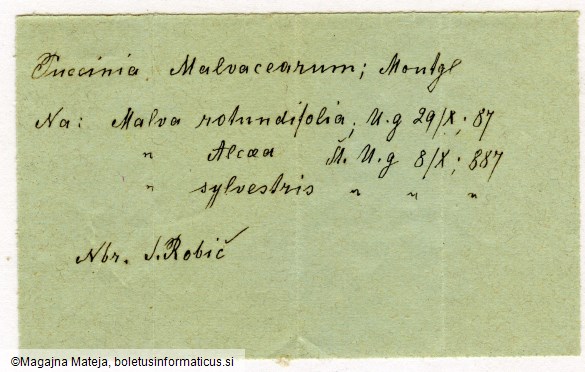 Puccinia Malvacearum; Montgl
Na: Malva rotundifolia; U.g 29/X; 87
" Alcæa Št. U.g 8/X; 887
" sylvestris " " "
Nbr. S. Robič
©Magajna Mateja, boletusinformaticus.si